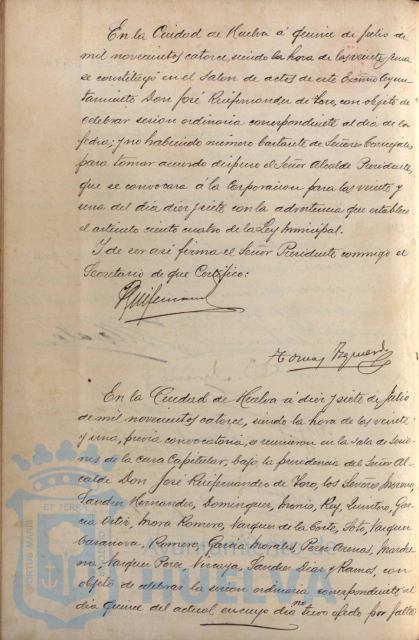 En la Ciudad de Huelva á quince de Julio de
mil novecientos catorce, siendo la hora de las veinte y una
se constituyó en el Salon de actos de este Excmo Ayun-
tamiento Don José Ruifernandez de Toro, con objeto de
celebrar sesion ordinaria correspondiente al dia de la
fecha; y no habiendo número bastante de Señores Concejales
para tomar acuerdo dispuso el Señor Alcalde Presidente,
que se convocara á la Corporacion para las veinte y
una del dia diez y siete con la advertencia que establece
el artículo ciento cuatro de la Ley Municipal.
Y de ser así firma el Señor Presidente conmigo el
Secretario de que Certifico:
Ruifernand
Tomas
En la Ciudad de Huelva á diez y siete de Julio
de mil novecientos catorce, siendo la hora de las veinte
y una, previa convocatoria, se reunieron en la sala de Sesio-
nes de la casa Capitular, bajo la presidencia del Señor Al-
calde Don José Ruifernandez de Toro, los Señores Moreno,
Sanchez Hernandez, Dominguez, Rey, Quintero, Gar-
cia Ortiz, Mora Romero, Vazquez de la Corte, Soto, Vazquez
Casanova, Romero, Garcia Morales, Perez Arenas, Marche-
na, Vazquez Perez, Vizcaya, Sanchez Diaz y Ramos, con
objeto de celebrar la sesion ordinaria correspondiente al
dia quince del actual en cuyo dia no tuvo efecto por falta
PORTUS MARIS
ET TERRAE
HUELVA